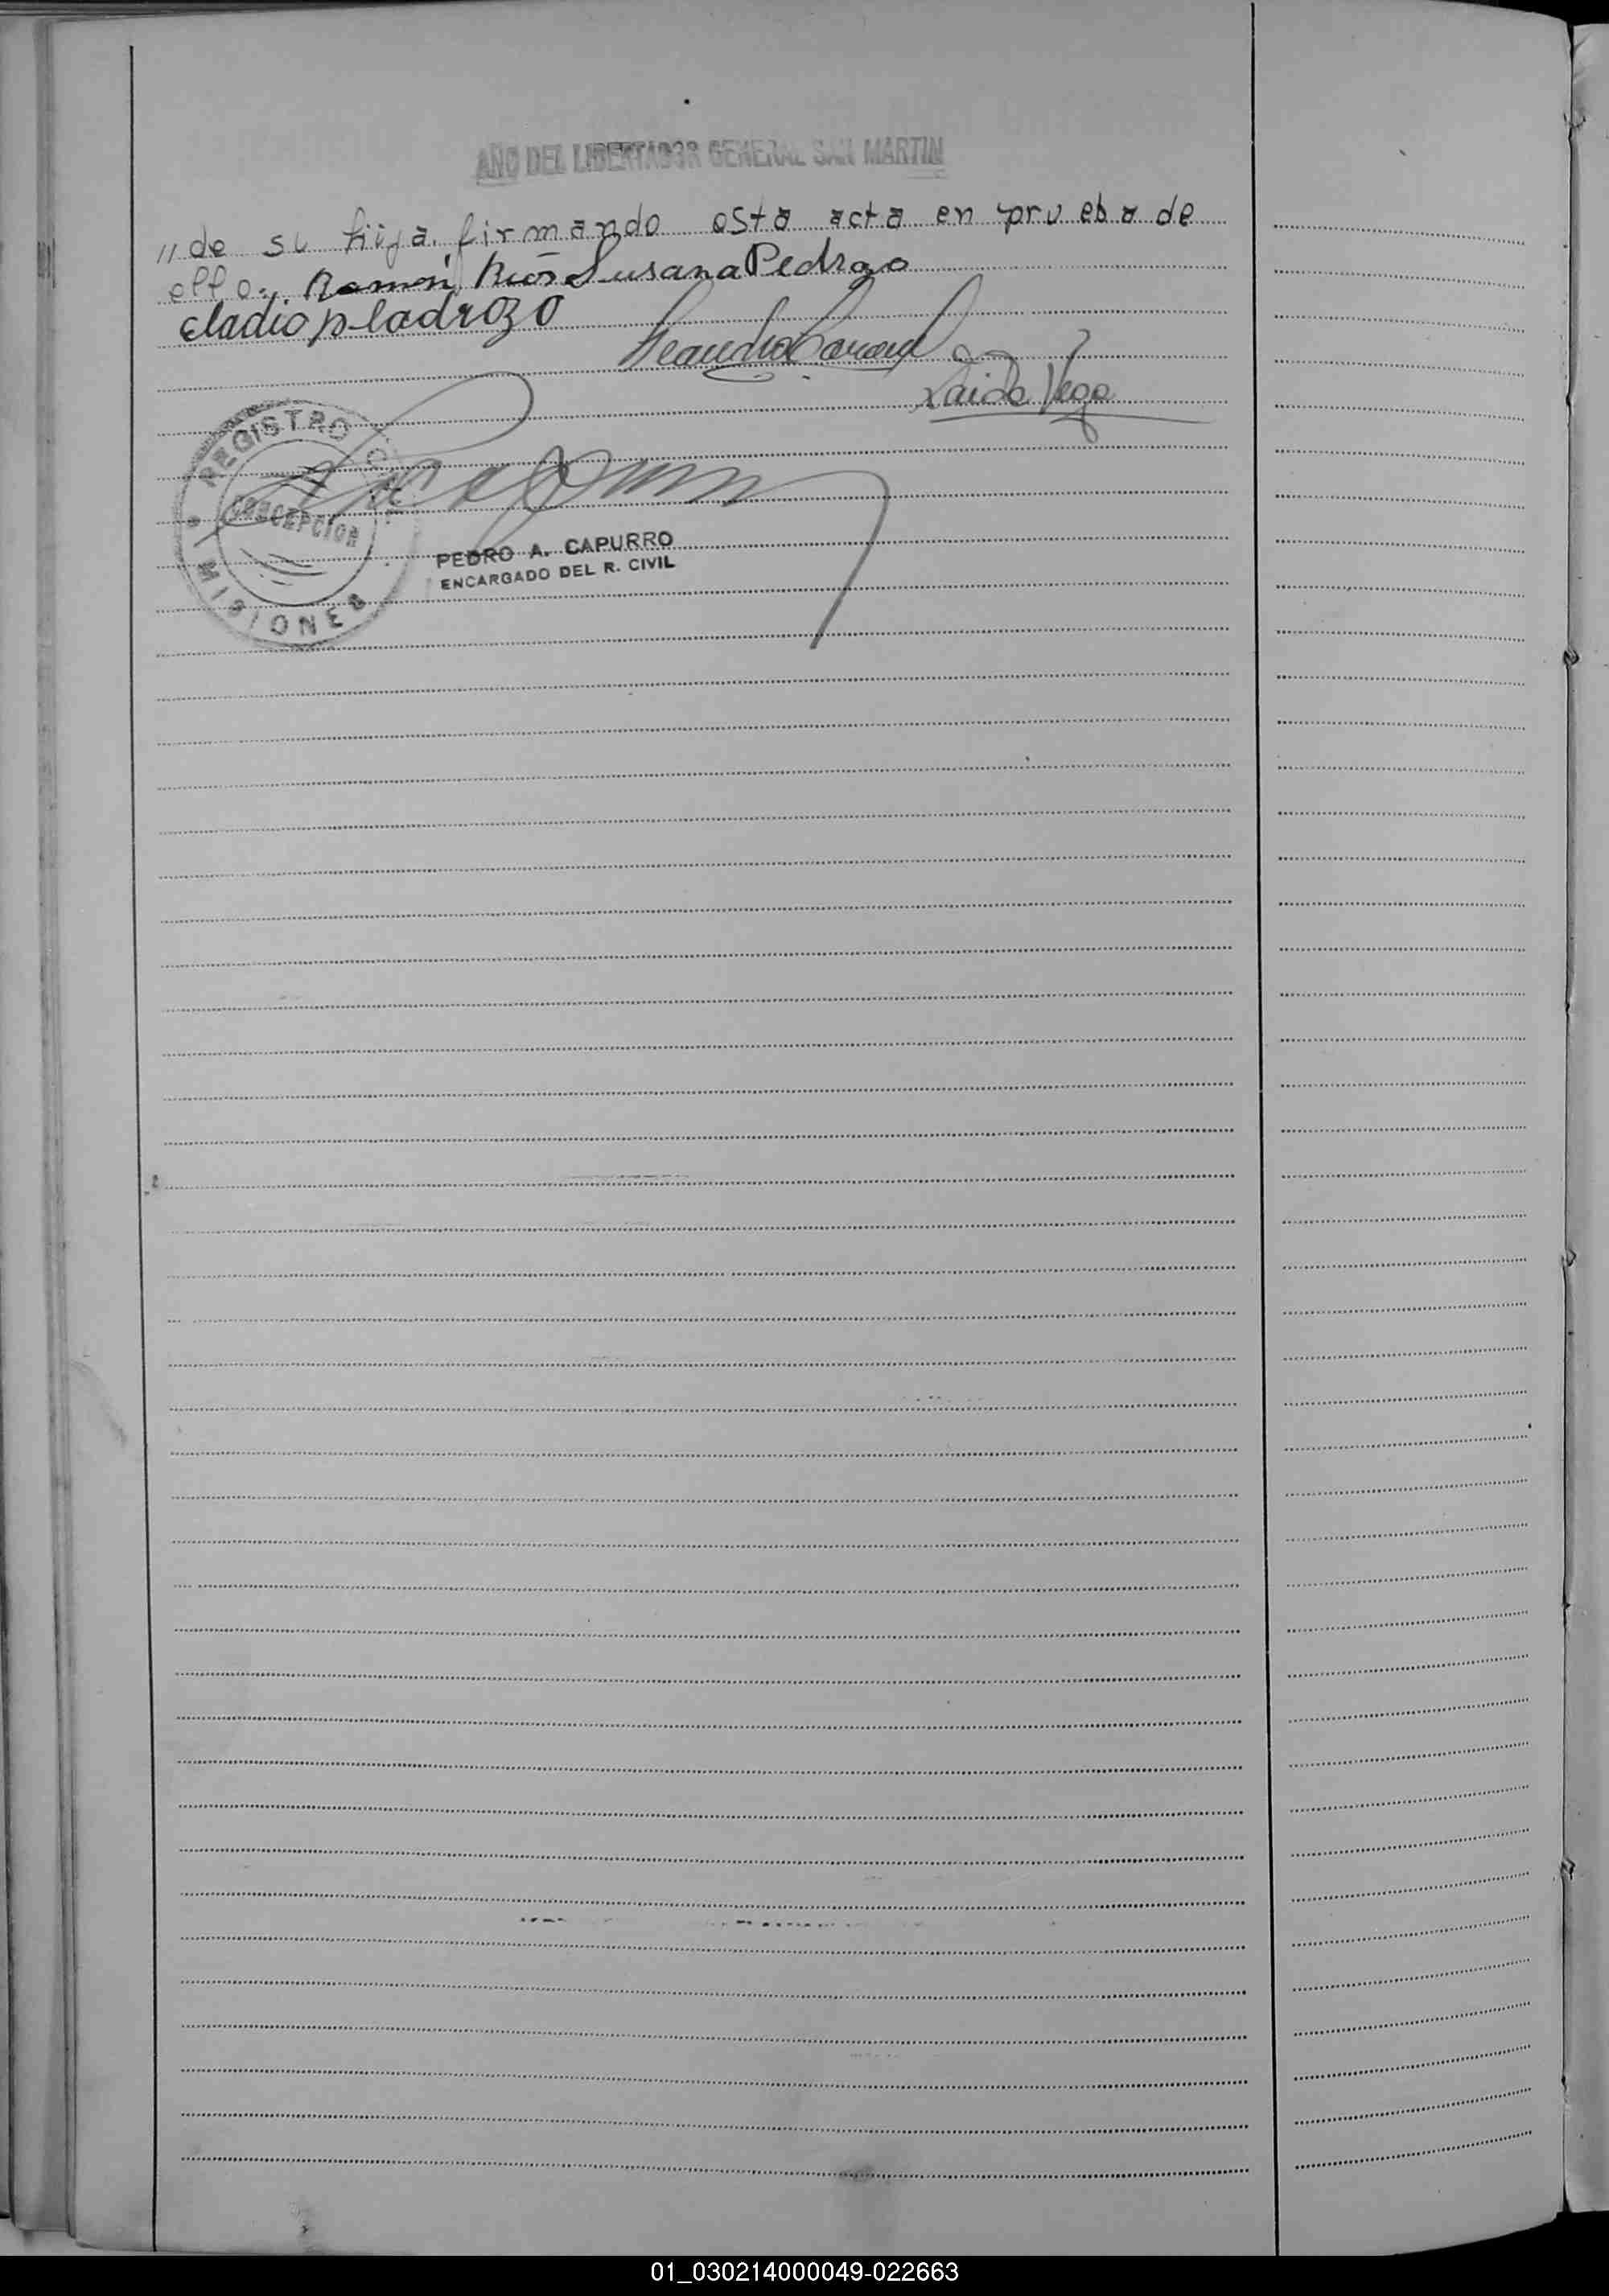 AÑO DEL LIBERTADOR GENERAL SAN MARTIN
,, de su hija, firmando esta acta en prueba de
ello.. Ramón Rios Susana Pedrozo
eladio pladrozo
Leandro
Laida Vega
REGISTRO CIVIL
CONCEPCION
MISIONES
PEDRO A. CAPURRO
ENCARGADO DEL R. CIVIL
01_030214000049-022663